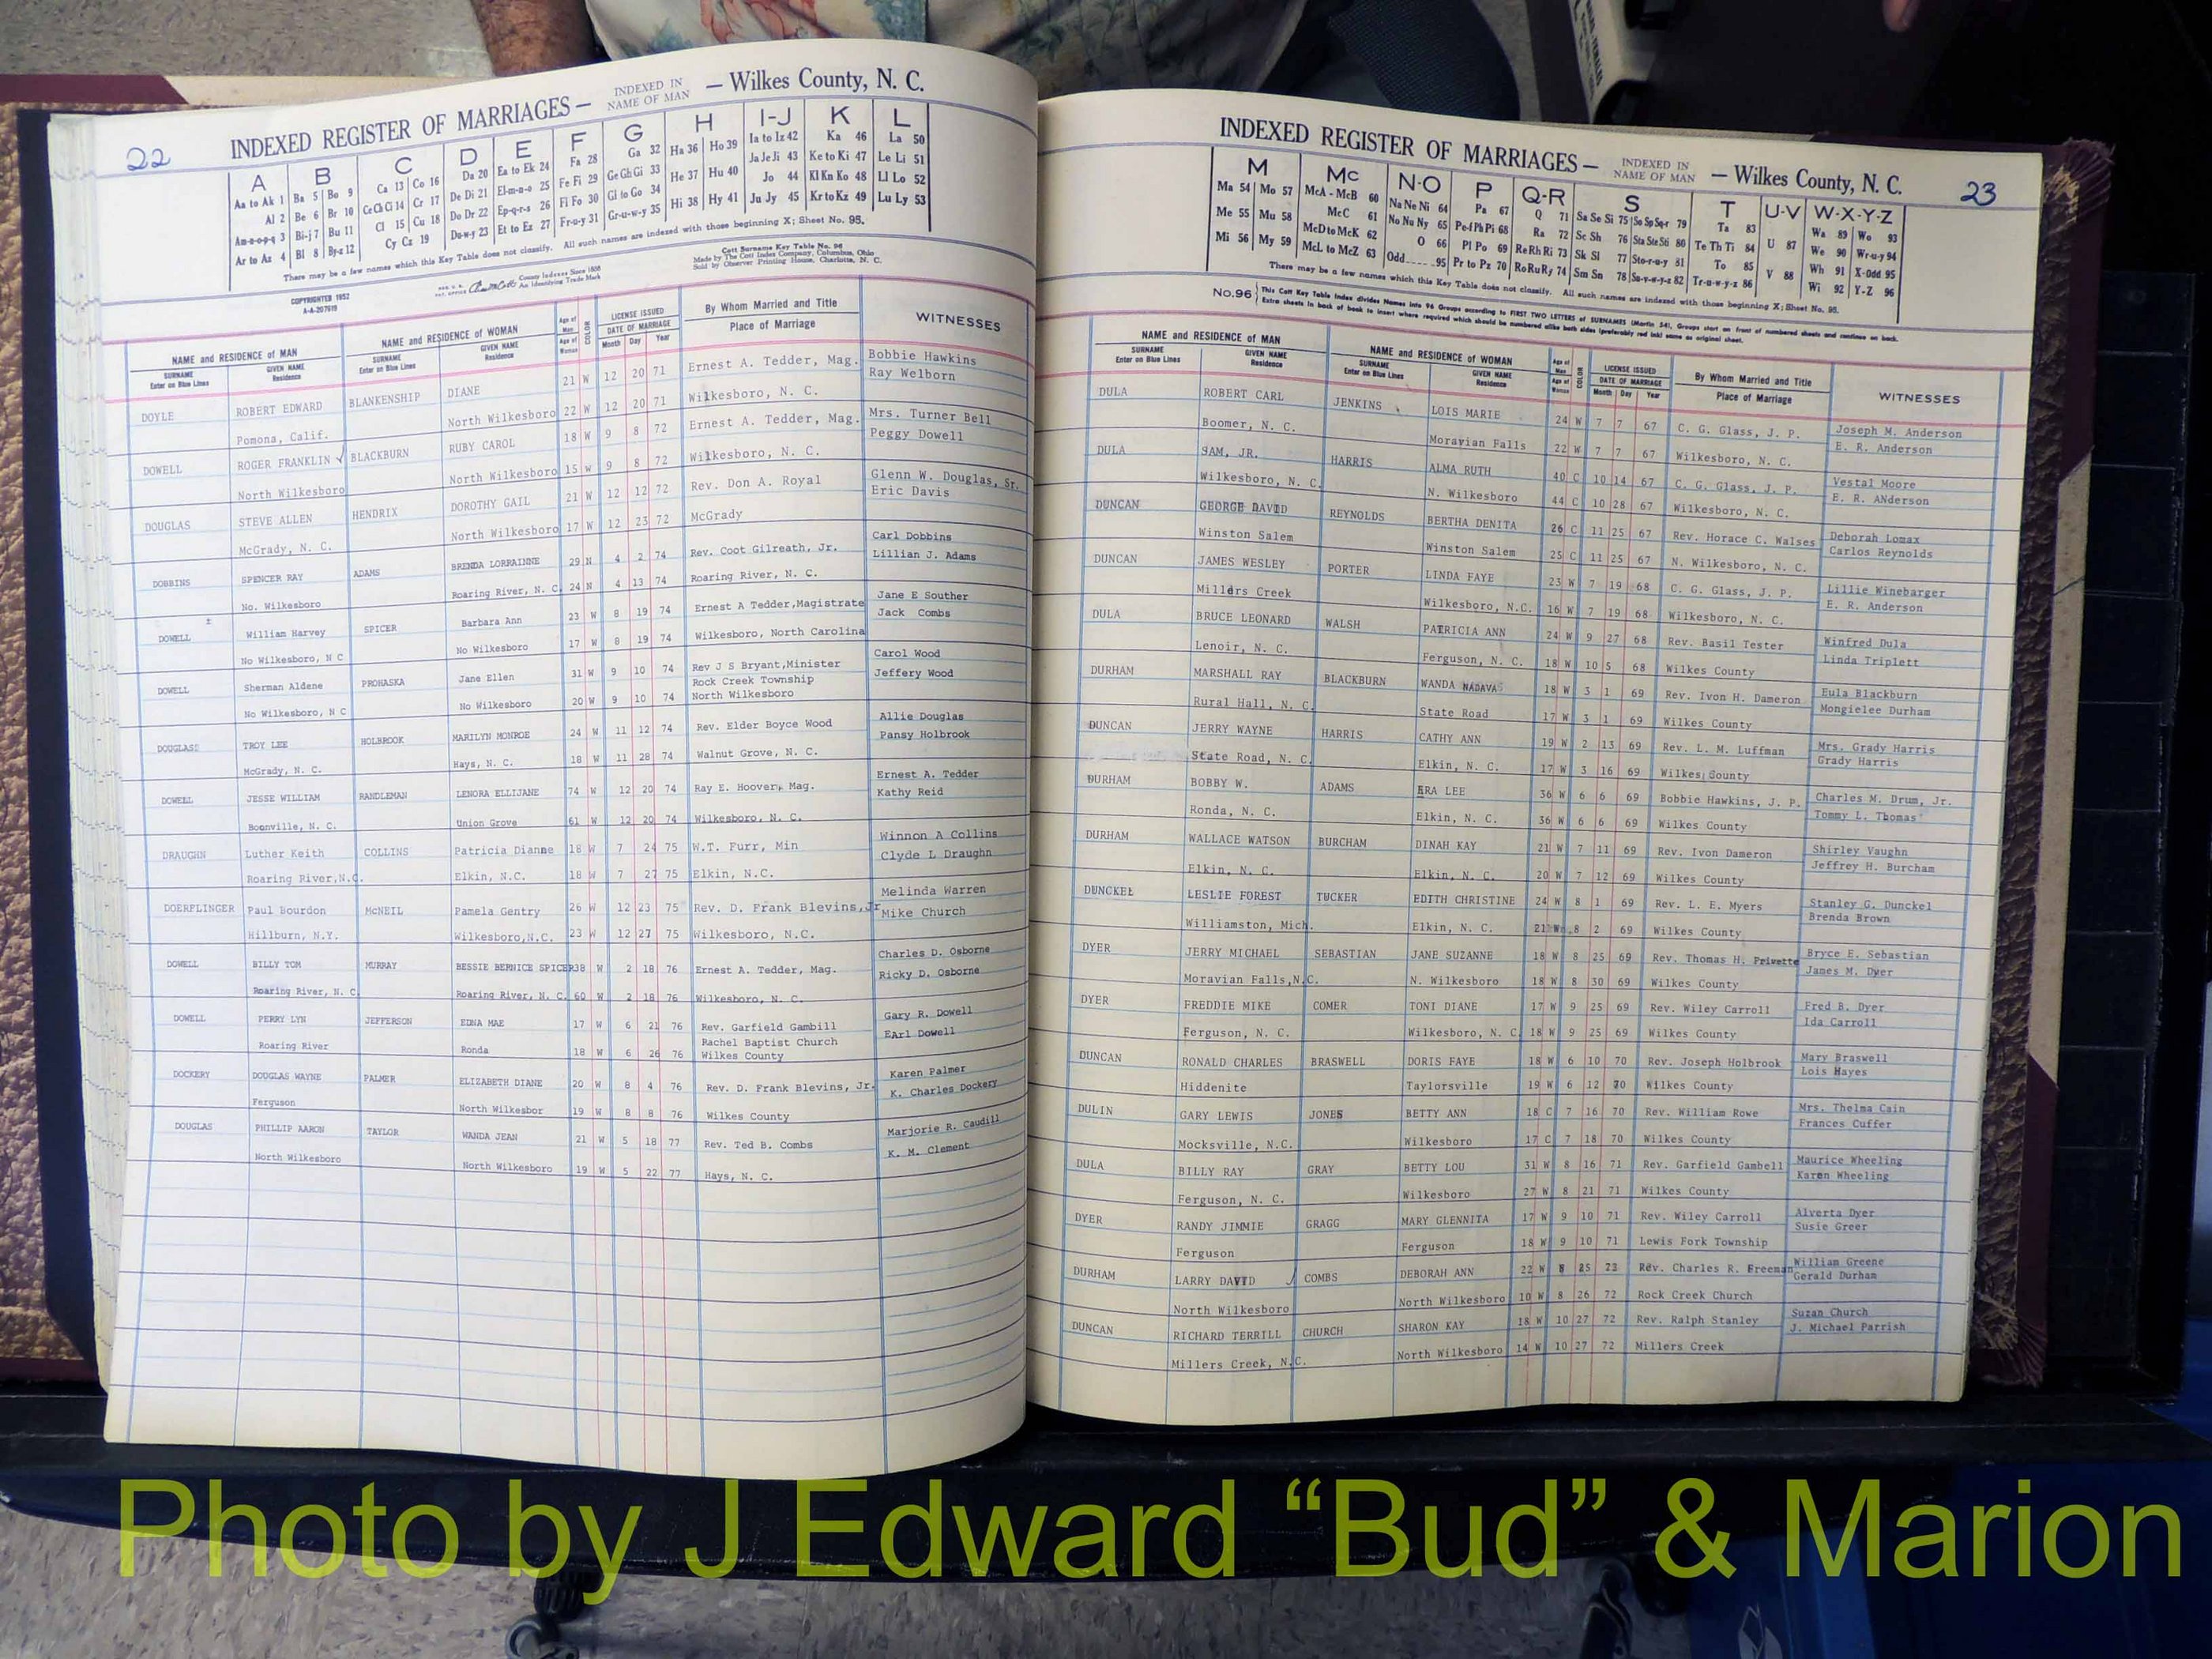 22
INDEXED REGISTER OF MARRIAGES — INDEXED IN NAME OF MAN — Wilkes County, N. C.
A B C D E F G H I-J K L
Aa to Ak 1 Ba 5 Bo 9 Ca 13 Co 16 Da 20 Ea to Ek 24 Fa 28 Ga 32 Ha 36 Ho 39 Ia to Iz 42 Ka 46 La 50
Al 2 Be 6 Br 10 Ce Ch Ci 14 Cr 17 De Di 21 El-m-n-o 25 Fe Fi 29 Ge Gh Gi 33 He 37 Hu 40 Ja Je Ji 43 Ke to Ki 47 Le Li 51
Am-n-o-p-q 3 Bi-j 7 Bu 11 Cl 15 Cu 18 Do Dr 22 Ep-q-r-s 26 Fl Fo 30 Gl to Go 34 Hi 38 Hy 41 Jo 44 Kl Kn Ko 48 Ll Lo 52
Ar to Az 4 Bl 8 By-z 12 Cy Cz 19 Du-w-y 23 Et to Ez 27 Fr-u-y 31 Gr-u-w-y 35 Ju Jy 45 Kr to Kz 49 Lu Ly 53
There may be a few names which this Key Table does not classify. All such names are indexed with those beginning X; Sheet No. 95.
COPYRIGHTED 1952
A-A-207619
County Indexes Since 1888
An Identifying Trade Mark
Cott Surname Key Table No. 96
Made by The Cott Index Company, Columbus, Ohio
Sold by Observer Printing House, Charlotte, N. C.
NAME and RESIDENCE of MAN NAME and RESIDENCE of WOMAN Age of Man COLOR LICENSE ISSUED By Whom Married and Title WITNESSES
SURNAME GIVEN NAME SURNAME GIVEN NAME Age of Woman DATE OF MARRIAGE Place of Marriage
Enter on Blue Lines Residence Enter on Blue Lines Residence Month Day Year
DOYLE ROBERT EDWARD BLANKENSHIP DIANE 21 W 12 20 71 Ernest A. Tedder, Mag. Bobbie Hawkins
Pomona, Calif. North Wilkesboro 22 W 12 20 71 Wilkesboro, N. C. Ray Welborn
DOWELL ROGER FRANKLIN ✓ BLACKBURN RUBY CAROL 18 W 9 8 72 Ernest A. Tedder, Mag. Mrs. Turner Bell
North Wilkesboro North Wilkesboro 15 W 9 8 72 Wilkesboro, N. C. Peggy Dowell
DOUGLAS STEVE ALLEN HENDRIX DOROTHY GAIL 21 W 12 12 72 Rev. Don A. Royal Glenn W. Douglas, Sr.
McGrady, N. C. North Wilkesboro 17 W 12 23 72 McGrady Eric Davis
DOBBINS SPENCER RAY ADAMS BRENDA LORRAINNE 29 N 4 2 74 Rev. Coot Gilreath, Jr. Carl Dobbins
No. Wilkesboro Roaring River, N. C. 24 N 4 13 74 Roaring River, N. C. Lillian J. Adams
DOWELL William Harvey SPICER Barbara Ann 23 W 8 19 74 Ernest A Tedder,Magistrate Jane E Souther
No Wilkesboro, N C No Wilkesboro 17 W 8 19 74 Wilkesboro, North Carolina Jack Combs
DOWELL Sherman Aldene PROHASKA Jane Ellen 31 W 9 10 74 Rev J S Bryant,Minister Carol Wood
Rock Creek Township Jeffery Wood
No Wilkesboro, N C No Wilkesboro 20 W 9 10 74 North Wilkesboro
DOUGLASS TROY LEE HOLBROOK MARILYN MONROE 24 W 11 12 74 Rev. Elder Boyce Wood Allie Douglas
McGrady, N. C. Hays, N. C. 18 W 11 28 74 Walnut Grove, N. C. Pansy Holbrook
DOWELL JESSE WILLIAM RANDLEMAN LENORA ELLIJANE 74 W 12 20 74 Ray E. Hoover, Mag. Ernest A. Tedder
Boonville, N. C. Union Grove 61 W 12 20 74 Wilkesboro, N. C. Kathy Reid
DRAUGHN Luther Keith COLLINS Patricia Dianne 18 W 7 24 75 W.T. Furr, Min Winnon A Collins
Roaring River,N.C. Elkin, N.C. 18 W 7 27 75 Elkin, N.C. Clyde L Draughn
DOERFLINGER Paul Bourdon McNEIL Pamela Gentry 26 W 12 23 75 Rev. D. Frank Blevins,Jr Melinda Warren
Hillburn, N.Y. Wilkesboro,N.C. 23 W 12 27 75 Wilkesboro, N.C. Mike Church
DOWELL BILLY TOM MURRAY BESSIE BERNICE SPICER 38 W 2 18 76 Ernest A. Tedder, Mag. Charles D. Osborne
Roaring River, N. C. Roaring River, N. C. 60 W 2 18 76 Wilkesboro, N. C. Ricky D. Osborne
DOWELL PERRY LYN JEFFERSON EDNA MAE 17 W 6 21 76 Rev. Garfield Gambill Gary R. Dowell
Rachel Baptist Church EArl Dowell
Roaring River Ronda 18 W 6 26 76 Wilkes County
DOCKERY DOUGLAS WAYNE PALMER ELIZABETH DIANE 20 W 8 4 76 Rev. D. Frank Blevins, Jr. Karen Palmer
Ferguson North Wilkesbor 19 W 8 8 76 Wilkes County K. Charles Dockery
DOUGLAS PHILLIP AARON TAYLOR WANDA JEAN 21 W 5 18 77 Rev. Ted B. Combs Marjorie R. Caudill
North Wilkesboro North Wilkesboro 19 W 5 22 77 Hays, N. C. K. M. Clement
INDEXED REGISTER OF MARRIAGES — INDEXED IN NAME OF MAN — Wilkes County, N. C.
23
M Mc N-O P Q-R S T U-V W-X-Y-Z
Ma 54 Mo 57 McA - McB 60 Na Ne Ni 64 Pa 67 Q 71 Sa Se Si 75 So Sp Sq-r 79 Ta 83 U 87 Wa 89 Wo 93
Me 55 Mu 58 McC 61 No Nu Ny 65 Pe-f Ph Pi 68 Ra 72 Sc Sh 76 Sta Ste Sti 80 Te Th Ti 84 V 88 We 90 Wr-u-y 94
Mi 56 My 59 McD to McK 62 O 66 Pl Po 69 Re Rh Ri 73 Sk Sl 77 Sto-r-u-y 81 To 85 Wh 91 X-Odd 95
McL to McZ 63 Odd 95 Pr to Pz 70 Ro Ru Ry 74 Sm Sn 78 Su-v-w-y-z 82 Tr-u-w-y-z 86 Wi 92 Y-Z 96
There may be a few names which this Key Table does not classify. All such names are indexed with those beginning X; Sheet No. 95.
No.96 This Cott Key Table Index divides Names into 96 Groups according to FIRST TWO LETTERS of SURNAMES (Martin 54), Groups start on front of numbered sheets and continue on back.
Extra sheets in back of book to insert where required which should be numbered alike both sides (preferably red ink) same as original sheet.
NAME and RESIDENCE OF MAN NAME and RESIDENCE of WOMAN Age of Man COLOR LICENSE ISSUED By Whom Married and Title WITNESSES
SURNAME GIVEN NAME SURNAME GIVEN NAME Age of Woman DATE OF MARRIAGE Place of Marriage
Enter on Blue Lines Residence Enter on Blue Lines Residence Month Day Year
DULA ROBERT CARL JENKINS LOIS MARIE 24 W 7 7 67 C. G. Glass, J. P. Joseph M. Anderson
Boomer, N. C. Moravian Falls 22 W 7 7 67 Wilkesboro, N. C. E. R. Anderson
DULA SAM, JR. HARRIS ALMA RUTH 40 C 10 14 67 C. G. Glass, J. P. Vestal Moore
Wilkesboro, N. C. N. Wilkesboro 44 C 10 28 67 Wilkesboro, N. C. E. R. ANderson
DUNCAN GEORGE DAVID REYNOLDS BERTHA DENITA 26 C 11 25 67 Rev. Horace C. Walses Deborah Lomax
Winston Salem Winston Salem 25 C 11 25 67 N. Wilkesboro, N. C. Carlos Reynolds
DUNCAN JAMES WESLEY PORTER LINDA FAYE 23 W 7 19 68 C. G. Glass, J. P. Lillie Winebarger
Millers Creek Wilkesboro, N.C. 16 W 7 19 68 Wilkesboro, N. C. E. R. Anderson
DULA BRUCE LEONARD WALSH PATRICIA ANN 24 W 9 27 68 Rev. Basil Tester Winfred Dula
Lenoir, N. C. Ferguson, N. C. 18 W 10 5 68 Wilkes County Linda Triplett
DURHAM MARSHALL RAY BLACKBURN WANDA NADAVA 18 W 3 1 69 Rev. Ivon H. Dameron Eula Blackburn
Rural Hall, N. C. State Road 17 W 3 1 69 Wilkes County Mongielee Durham
DUNCAN JERRY WAYNE HARRIS CATHY ANN 19 W 2 13 69 Rev. L. M. Luffman Mrs. Grady Harris
State Road, N. C. Elkin, N. C. 17 W 3 16 69 Wilkes County Grady Harris
DURHAM BOBBY W. ADAMS ERA LEE 36 W 6 6 69 Bobbie Hawkins, J. P. Charles M. Drum, Jr.
Ronda, N. C. Elkin, N. C. 36 W 6 6 69 Wilkes County Tommy L. Thomas
DURHAM WALLACE WATSON BURCHAM DINAH KAY 21 W 7 11 69 Rev. Ivon Dameron Shirley Vaughn
Elkin, N. C. Elkin, N. C. 20 W 7 12 69 Wilkes County Jeffrey H. Burcham
DUNCKEL LESLIE FOREST TUCKER EDITH CHRISTINE 24 W 8 1 69 Rev. L. E. Myers Stanley G. Dunckel
Williamston, Mich. Elkin, N. C. 21 W 8 2 69 Wilkes County Brenda Brown
DYER JERRY MICHAEL SEBASTIAN JANE SUZANNE 18 W 8 25 69 Rev. Thomas H. Privette Bryce E. Sebastian
Moravian Falls,N.C. N. Wilkesboro 18 W 8 30 69 Wilkes County James M. Dyer
DYER FREDDIE MIKE COMER TONI DIANE 17 W 9 25 69 Rev. Wiley Carroll Fred B. Dyer
Ferguson, N. C. Wilkesboro, N. C 18 W 9 25 69 Wilkes County Ida Carroll
DUNCAN RONALD CHARLES BRASWELL DORIS FAYE 18 W 6 10 70 Rev. Joseph Holbrook Mary Braswell
Hiddenite Taylorsville 19 W 6 12 70 Wilkes County Lois Hayes
DULIN GARY LEWIS JONES BETTY ANN 18 C 7 16 70 Rev. William Rowe Mrs. Thelma Cain
Mocksville, N.C. Wilkesboro 17 C 7 18 70 Wilkes County Frances Cuffer
DULA BILLY RAY GRAY BETTY LOU 31 W 8 16 71 Rev. Garfield Gambell Maurice Wheeling
Ferguson, N. C. Wilkesboro 27 W 8 21 71 Wilkes County Karen Wheeling
DYER RANDY JIMMIE GRAGG MARY GLENNITA 17 W 9 10 71 Rev. Wiley Carroll Alverta Dyer
Ferguson Ferguson 18 W 9 10 71 Lewis Fork Township Susie Greer
DURHAM LARRY DAVID ✓ COMBS DEBORAH ANN 22 W 8 25 Rev. Charles R. Freeman William Greene
North Wilkesboro North Wilkesboro 10 W 8 26 72 Rock Creek Church Gerald Durham
DUNCAN RICHARD TERRILL CHURCH SHARON KAY 18 W 10 27 72 Rev. Ralph Stanley Suzan Church
Millers Creek, N.C. North Wilkesboro 14 W 10 27 72 Millers Creek J. Michael Parrish
Photo by J Edward “Bud” & Marion